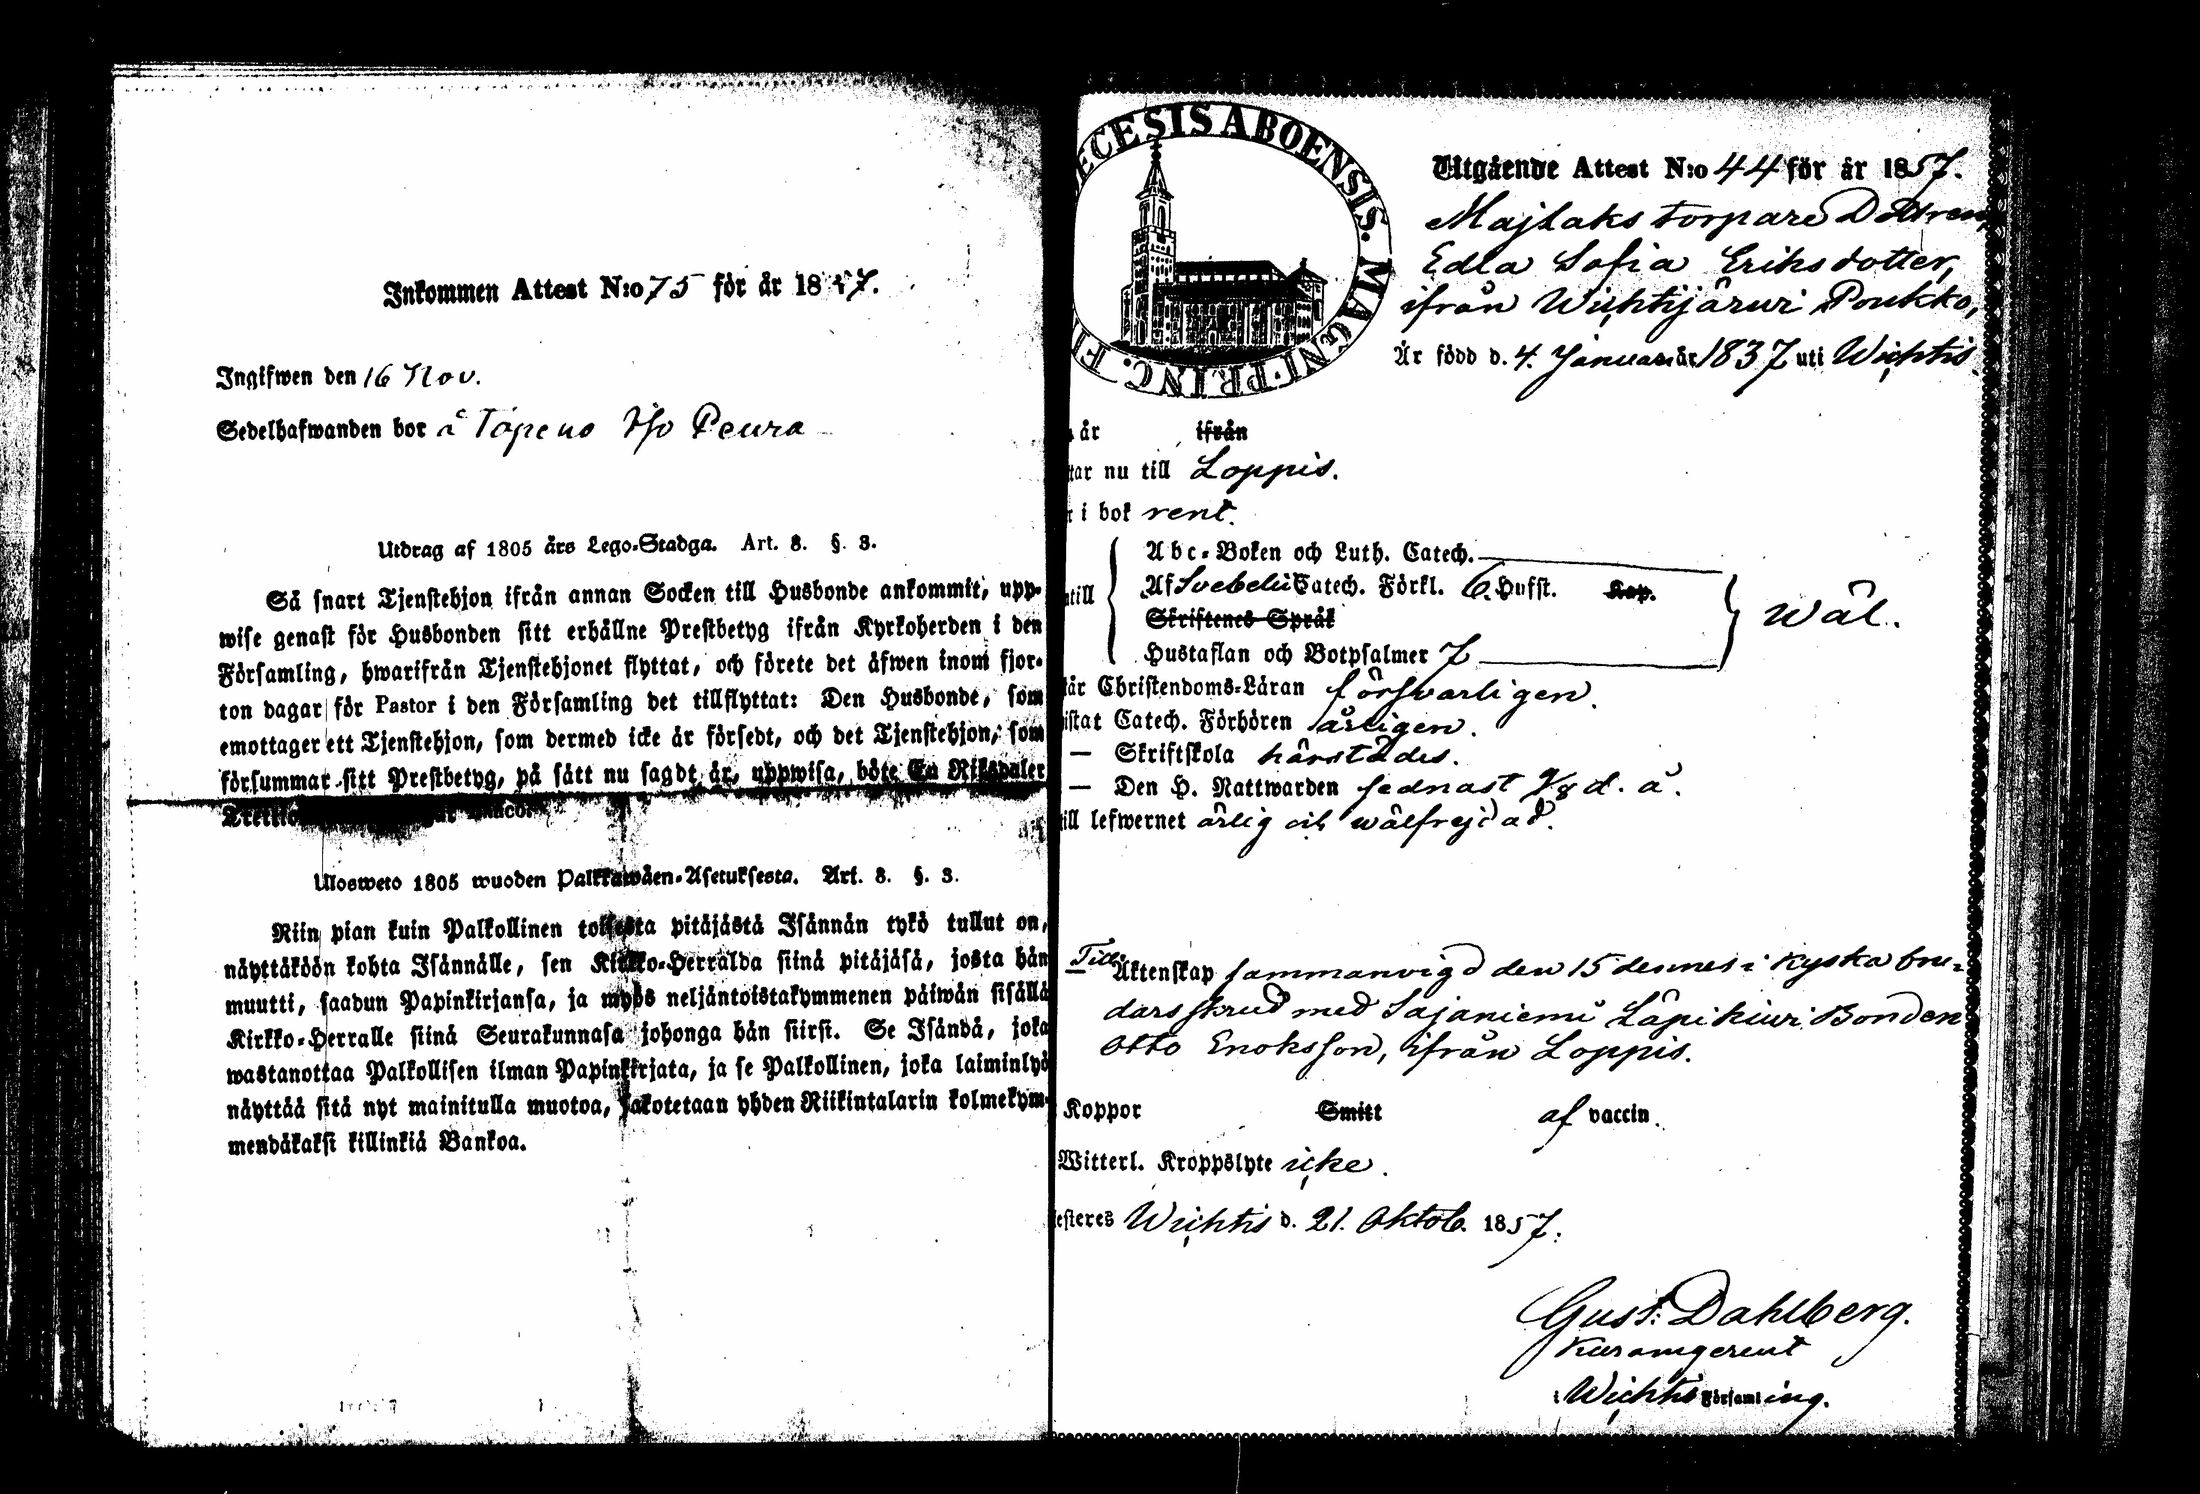 Inkommen Attest N:o 75 för år 1857.
Ingifwen den 16 Nov.
Sedelhafwanden bor å Topeno Peura
Utdrag af 1805 års Lego-Stadga. Art. 8. §. 3.
Så snart Tjenstehjon ifrån annan Socken till Husbonde ankommit, upp-
wise genast för Husbonden sitt erhållne Prestbetyg ifrån Kyrkoherden i den
Församling, hwarifrån Tjenstehjonet flyttat, och förete det äfwen inom fjor-
ton dagar för Pastor i den Församling det tillflyttat: Den Husbonde, som
emottager ett Tjenstehjon, som dermed icke är försedt, och det Tjenstehjon, som
försummar sitt Prestbetyg, på sätt nu sagdt är, uppwisa, böte En Riksdaler
Ulosweto 1805 wuoden Palkkawäen-Asetuksesta. Art. 8. §. 3.
Niin pian kuin Palkollinen toisesta pitäjästä Isännän tykö tullut on,
näyttäköön kohta Isännälle, sen Kirkko-Herralda siinä pitäjäsä, josta hän
muutti, saadun Papinkirjansa, ja myös neljäntoistakymmenen päiwän sisällä
Kirkko-Herralle siinä Seurakunnasa johonga hän siirsi. Se Isändä, joka
wastanottaa Palkollisen ilman Papinkirjata, ja se Palkollinen, joka laiminlyö
näyttää sitä nyt mainitulla muotoa, sakotetaan yhden Riikintalarin kolmekym-
mendäkaksi killinkiä Bankoa.
ECESIS ABOENSIS. MAGNI. PRINC. FI
Utgående Attest N:o 44 för år 1857.
Majlaks torpare Dottren,
Edla Sofia Eriksdotter,
ifrån Wichtijärwi Poukko,
Är född d. 4. Januari år 1837 uti Wichtis
år ifrån
tar nu till Loppis.
i bok rent.
Abc-Boken och Luth. Catech.
Af Svebelii Catech. Förkl. 6. Hufst. Kap.
ntill
wäl.
Skriftenes Språk
Hustaflan och Botpsalmer 7
tår Christendoms-Läran försvarligen.
istat Catech. Förhören årligen.
— Skriftskola härstädes.
— Den H. Nattwarden sednast 9/8 d. å.
till lefwernet ärlig och wälfrejdad.
Till Äktenskap sammanvigd den 15 dennes i kyska bru-
darsskrud med Sajaniemi Läpikiwi Bonden
Otto Enoksson, ifrån Loppis.
Koppor Smitt af vaccin.
Witterl. Kroppslyte icke.
testeres Wichtis d. 21. Oktob. 1857.
Gust. Dahlberg.
i Wichtis Församling.